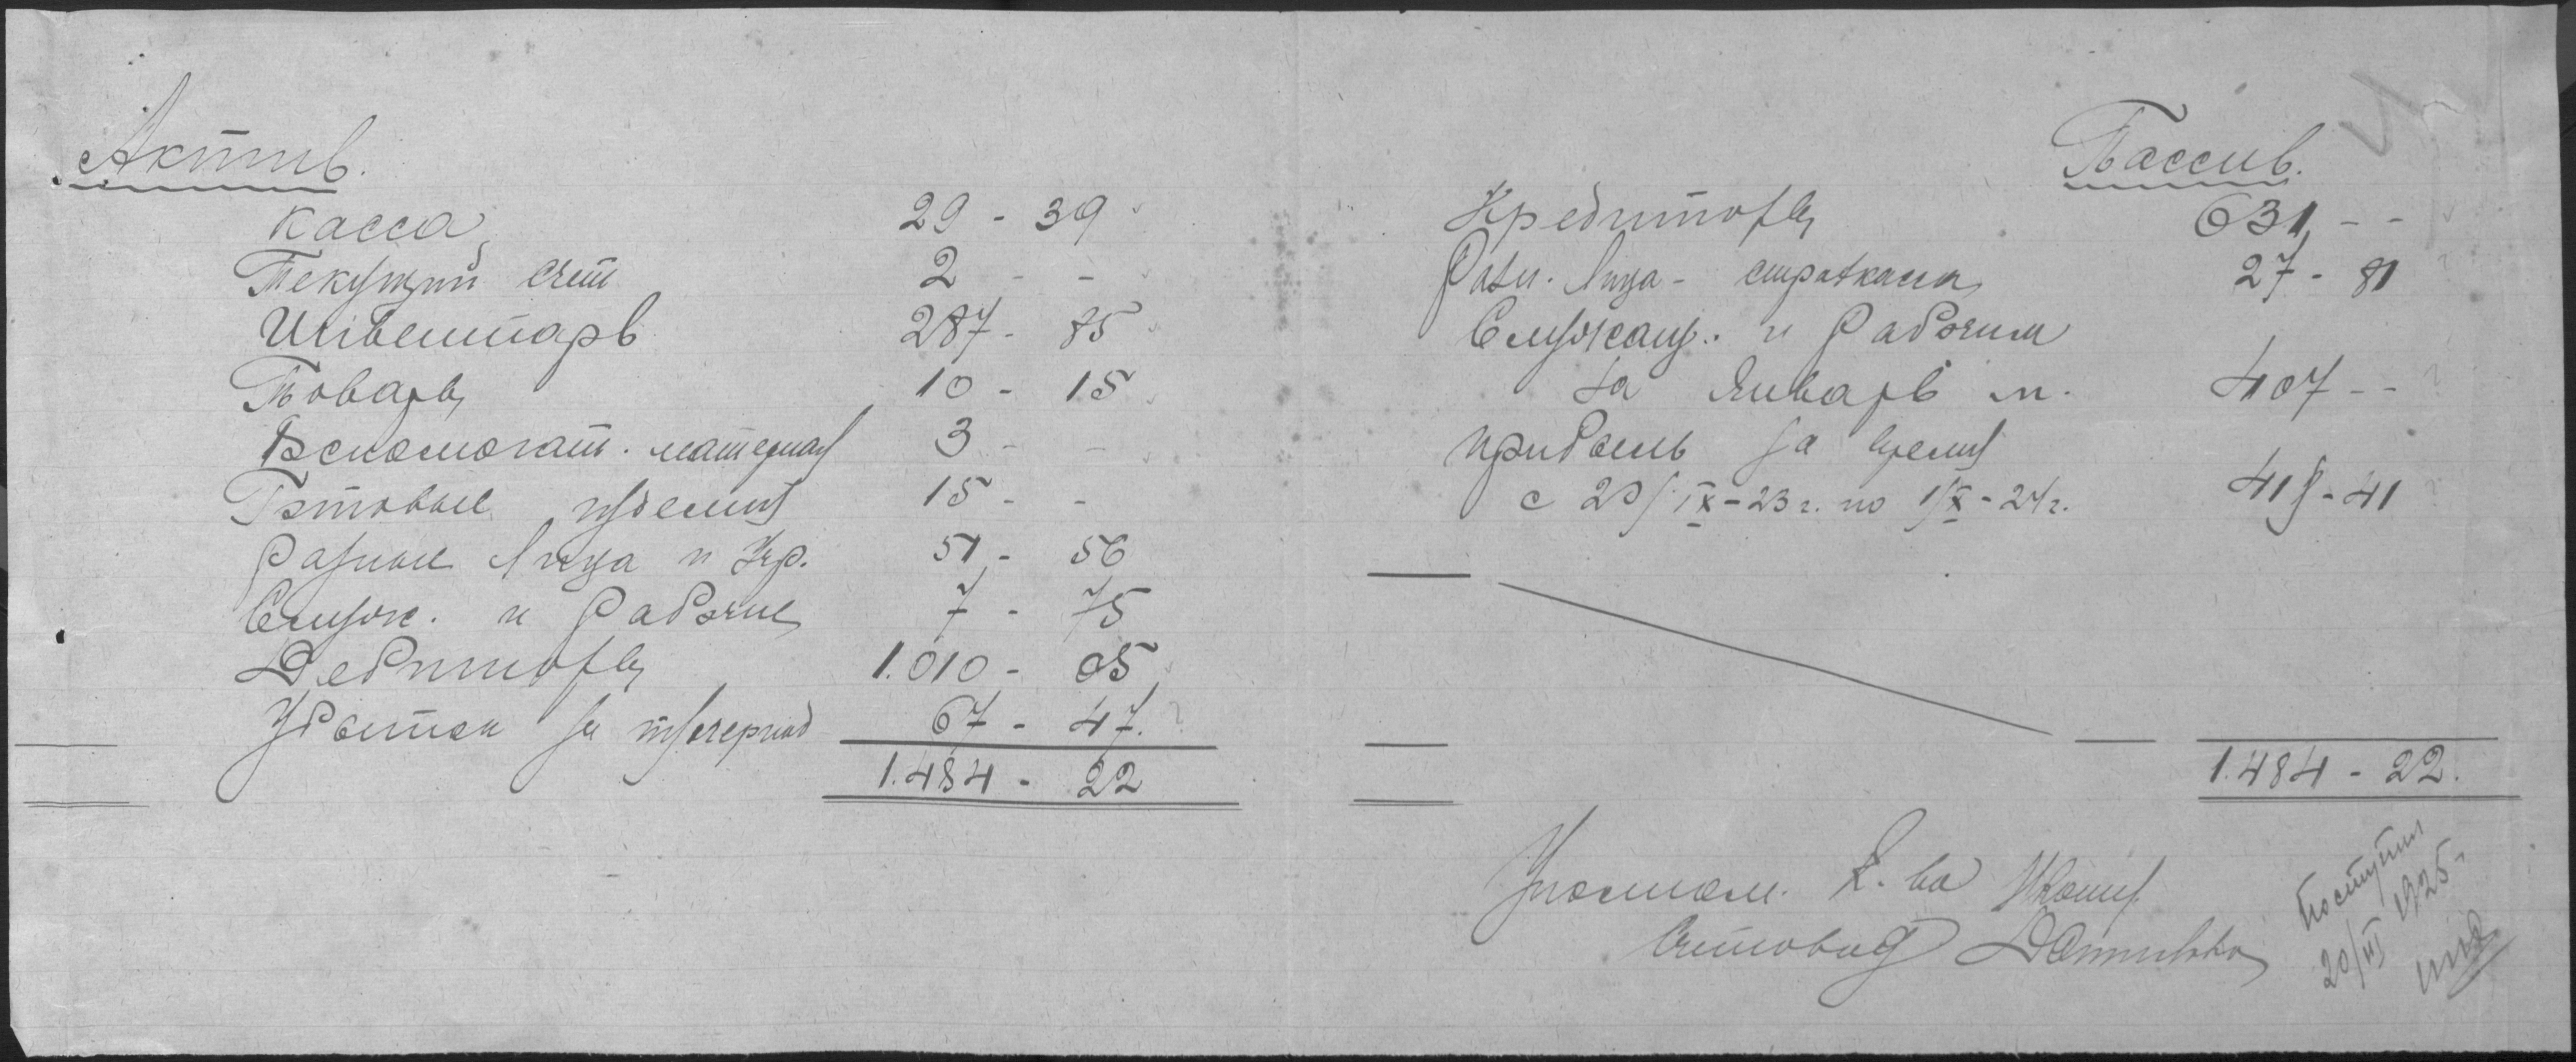 Актив.
Касса 29 - 39
Текущий счет 2 - -
Инвентарь 287 - 85
Товары 10 - 15
Вспомогат. материал 3 - -
Готовые изделия 15 - -
Разные Лица и Учр. 51 - 56
Служ. и Рабочие 7 - 75
Дебиторы 1.010 - 05
Убыток за 67 - 47.
1.484 - 22
Пассив.
Кредиторы 631 - -
Разн. Лица - страхкасса 27 - 81
Служащ. и Рабочим
за Январь м. 407 - -
прибыль за время
с 20/IX - 23 г. по 1/X - 24 г. 418 - 41
1.484 - 22.
Уполном. Т-ва
Счетовод
Поступил
20/III 1925